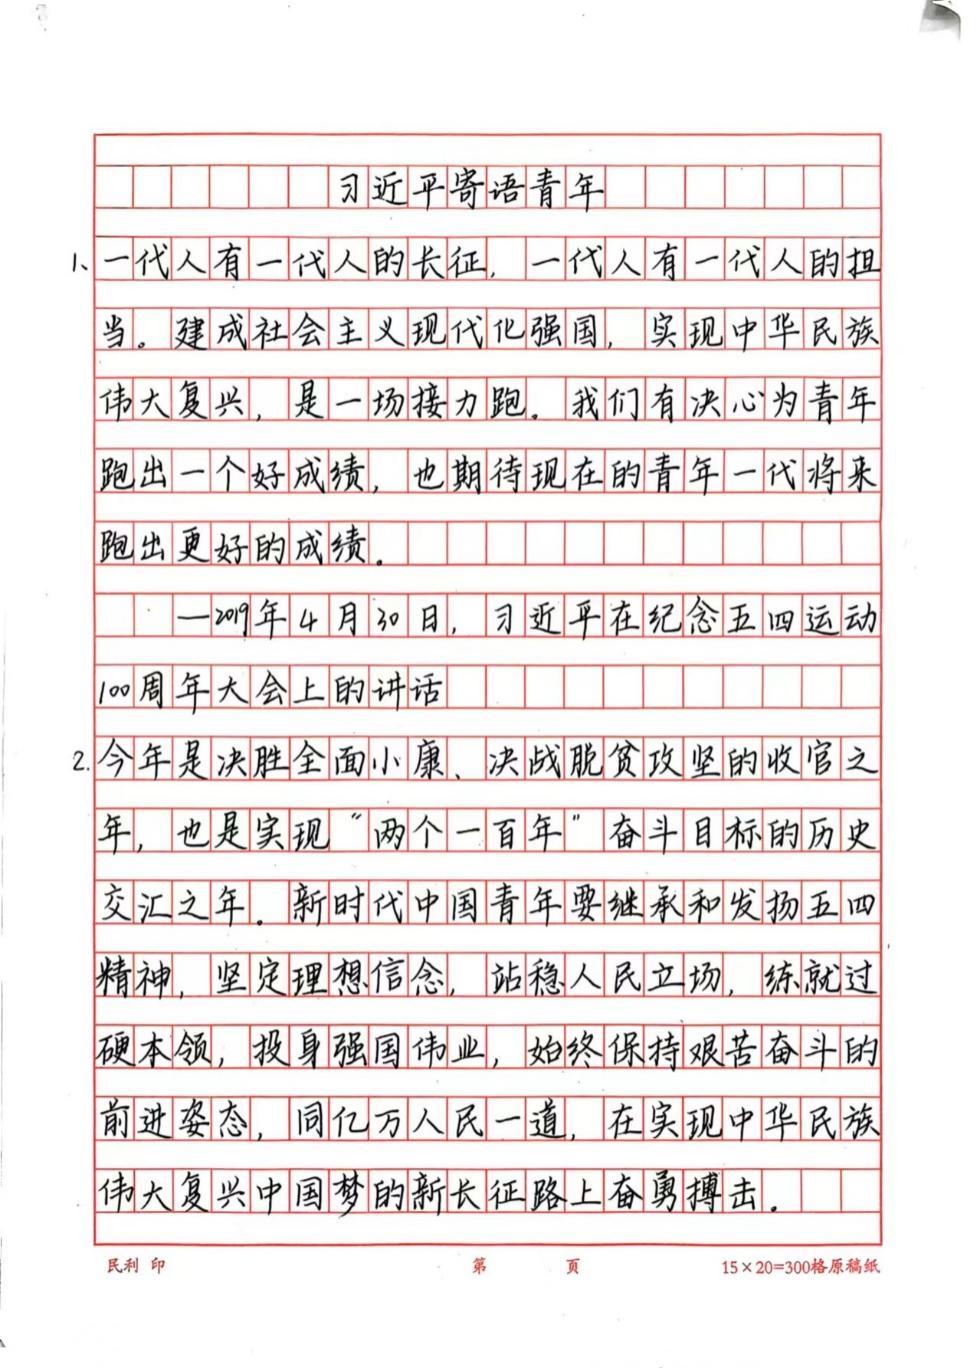 习近平寄语青年
1、一代人有一代人的长征，一代人有一代人的担
当。建成社会主义现代化强国，实现中华民族
伟大复兴，是一场接力跑。我们有决心为青年
跑出一个好成绩，也期待现在的青年一代将来
跑出更好的成绩。
—2019年4月30日，习近平在纪念五四运动
100周年大会上的讲话
2.今年是决胜全面小康、决战脱贫攻坚的收官之
年，也是实现“两个一百年”奋斗目标的历史
交汇之年。新时代中国青年要继承和发扬五四
精神，坚定理想信念，站稳人民立场，练就过
硬本领，投身强国伟业，始终保持艰苦奋斗的
前进姿态，同亿万人民一道，在实现中华民族
伟大复兴中国梦的新长征路上奋勇搏击。
民利 印 第 页 15×20=300格原稿纸